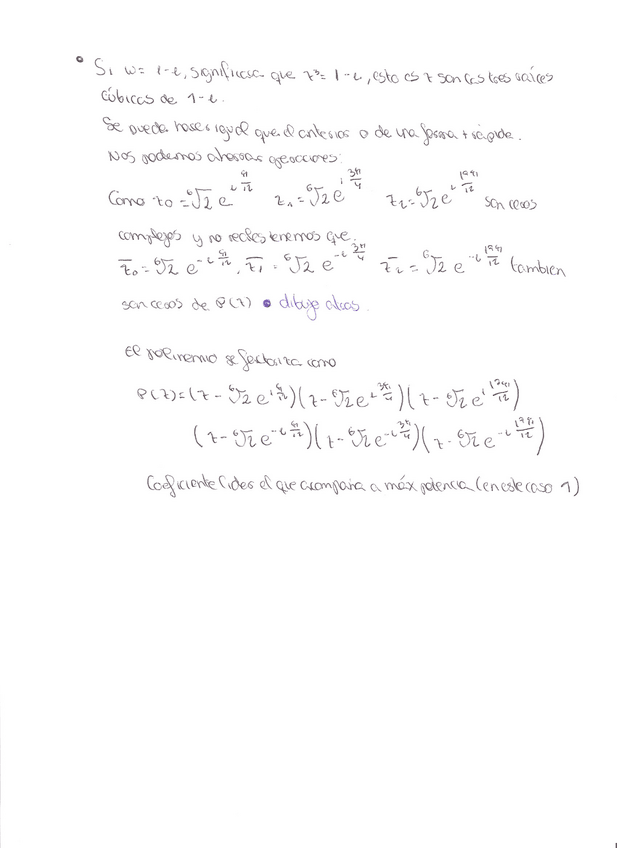 • Si w= 1-i, significaría que z³= 1-i, esto es z son las tres raíces
cúbicas de 1-i.
Se puede hacer igual que el anterior o de una forma + rápida.
Nos podemos ahorrar operaciones:
Como z₀ = ⁶√2 e^{i π/12} z₁ = ⁶√2 e^{i 3π/4} z₂ = ⁶√2 e^{i 17π/12} son ceros
complejos y no reales tenemos que:
z̄₀ = ⁶√2 e^{-i π/12}, z̄₁ = ⁶√2 e^{-i 3π/4} z̄₂ = ⁶√2 e^{-i 17π/12} tambien
son ceros de P(z) • dibuje
El polinomio se factoriza como
P(z)=(z - ⁶√2 e^{i π/12})(z - ⁶√2 e^{i 3π/4})(z - ⁶√2 e^{i 17π/12})
(z - ⁶√2 e^{-i π/12})(z - ⁶√2 e^{-i 3π/4})(z - ⁶√2 e^{-i 17π/12})
Coeficiente líder el que acompaña a máx potencia (en este caso 1)